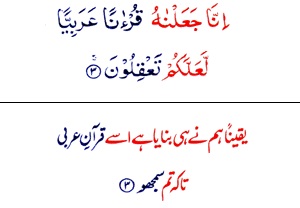 اِنَّا جَعَلْنٰهُ قُرْءٰنًا عَرَبِيًّا
لَّعَلَّكُمْ تَعْقِلُوْنَ ۚ ﴿۳﴾
یقیناً ہم نے ہی بنایا ہے اسے قرآنِ عربی
تاکہ تم سمجھو ﴿۳﴾